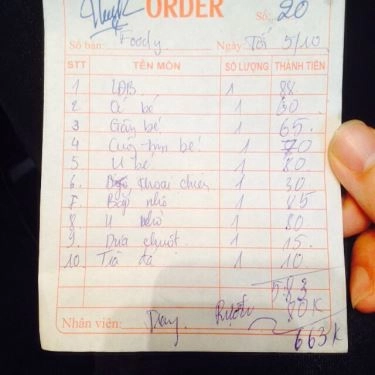 ORDER
Số: 20
Số bàn: Foody Ngày: Tối 5/10
STT TÊN MÓN SỐ LƯỢNG THÀNH TIỀN
1 LDB 1 88
2 bé 1 60
3 Gầu bé 1 65.
4 bé 1 70
5 U bé 1 80
6. khoai chiên 1 30
7 Bắp nhỏ 1 85
8. U nhỏ 1 80
9. Dưa chuột 1 15.
10. Trà đá 1 10
583
Rượu 80K
Nhân viên: 663K